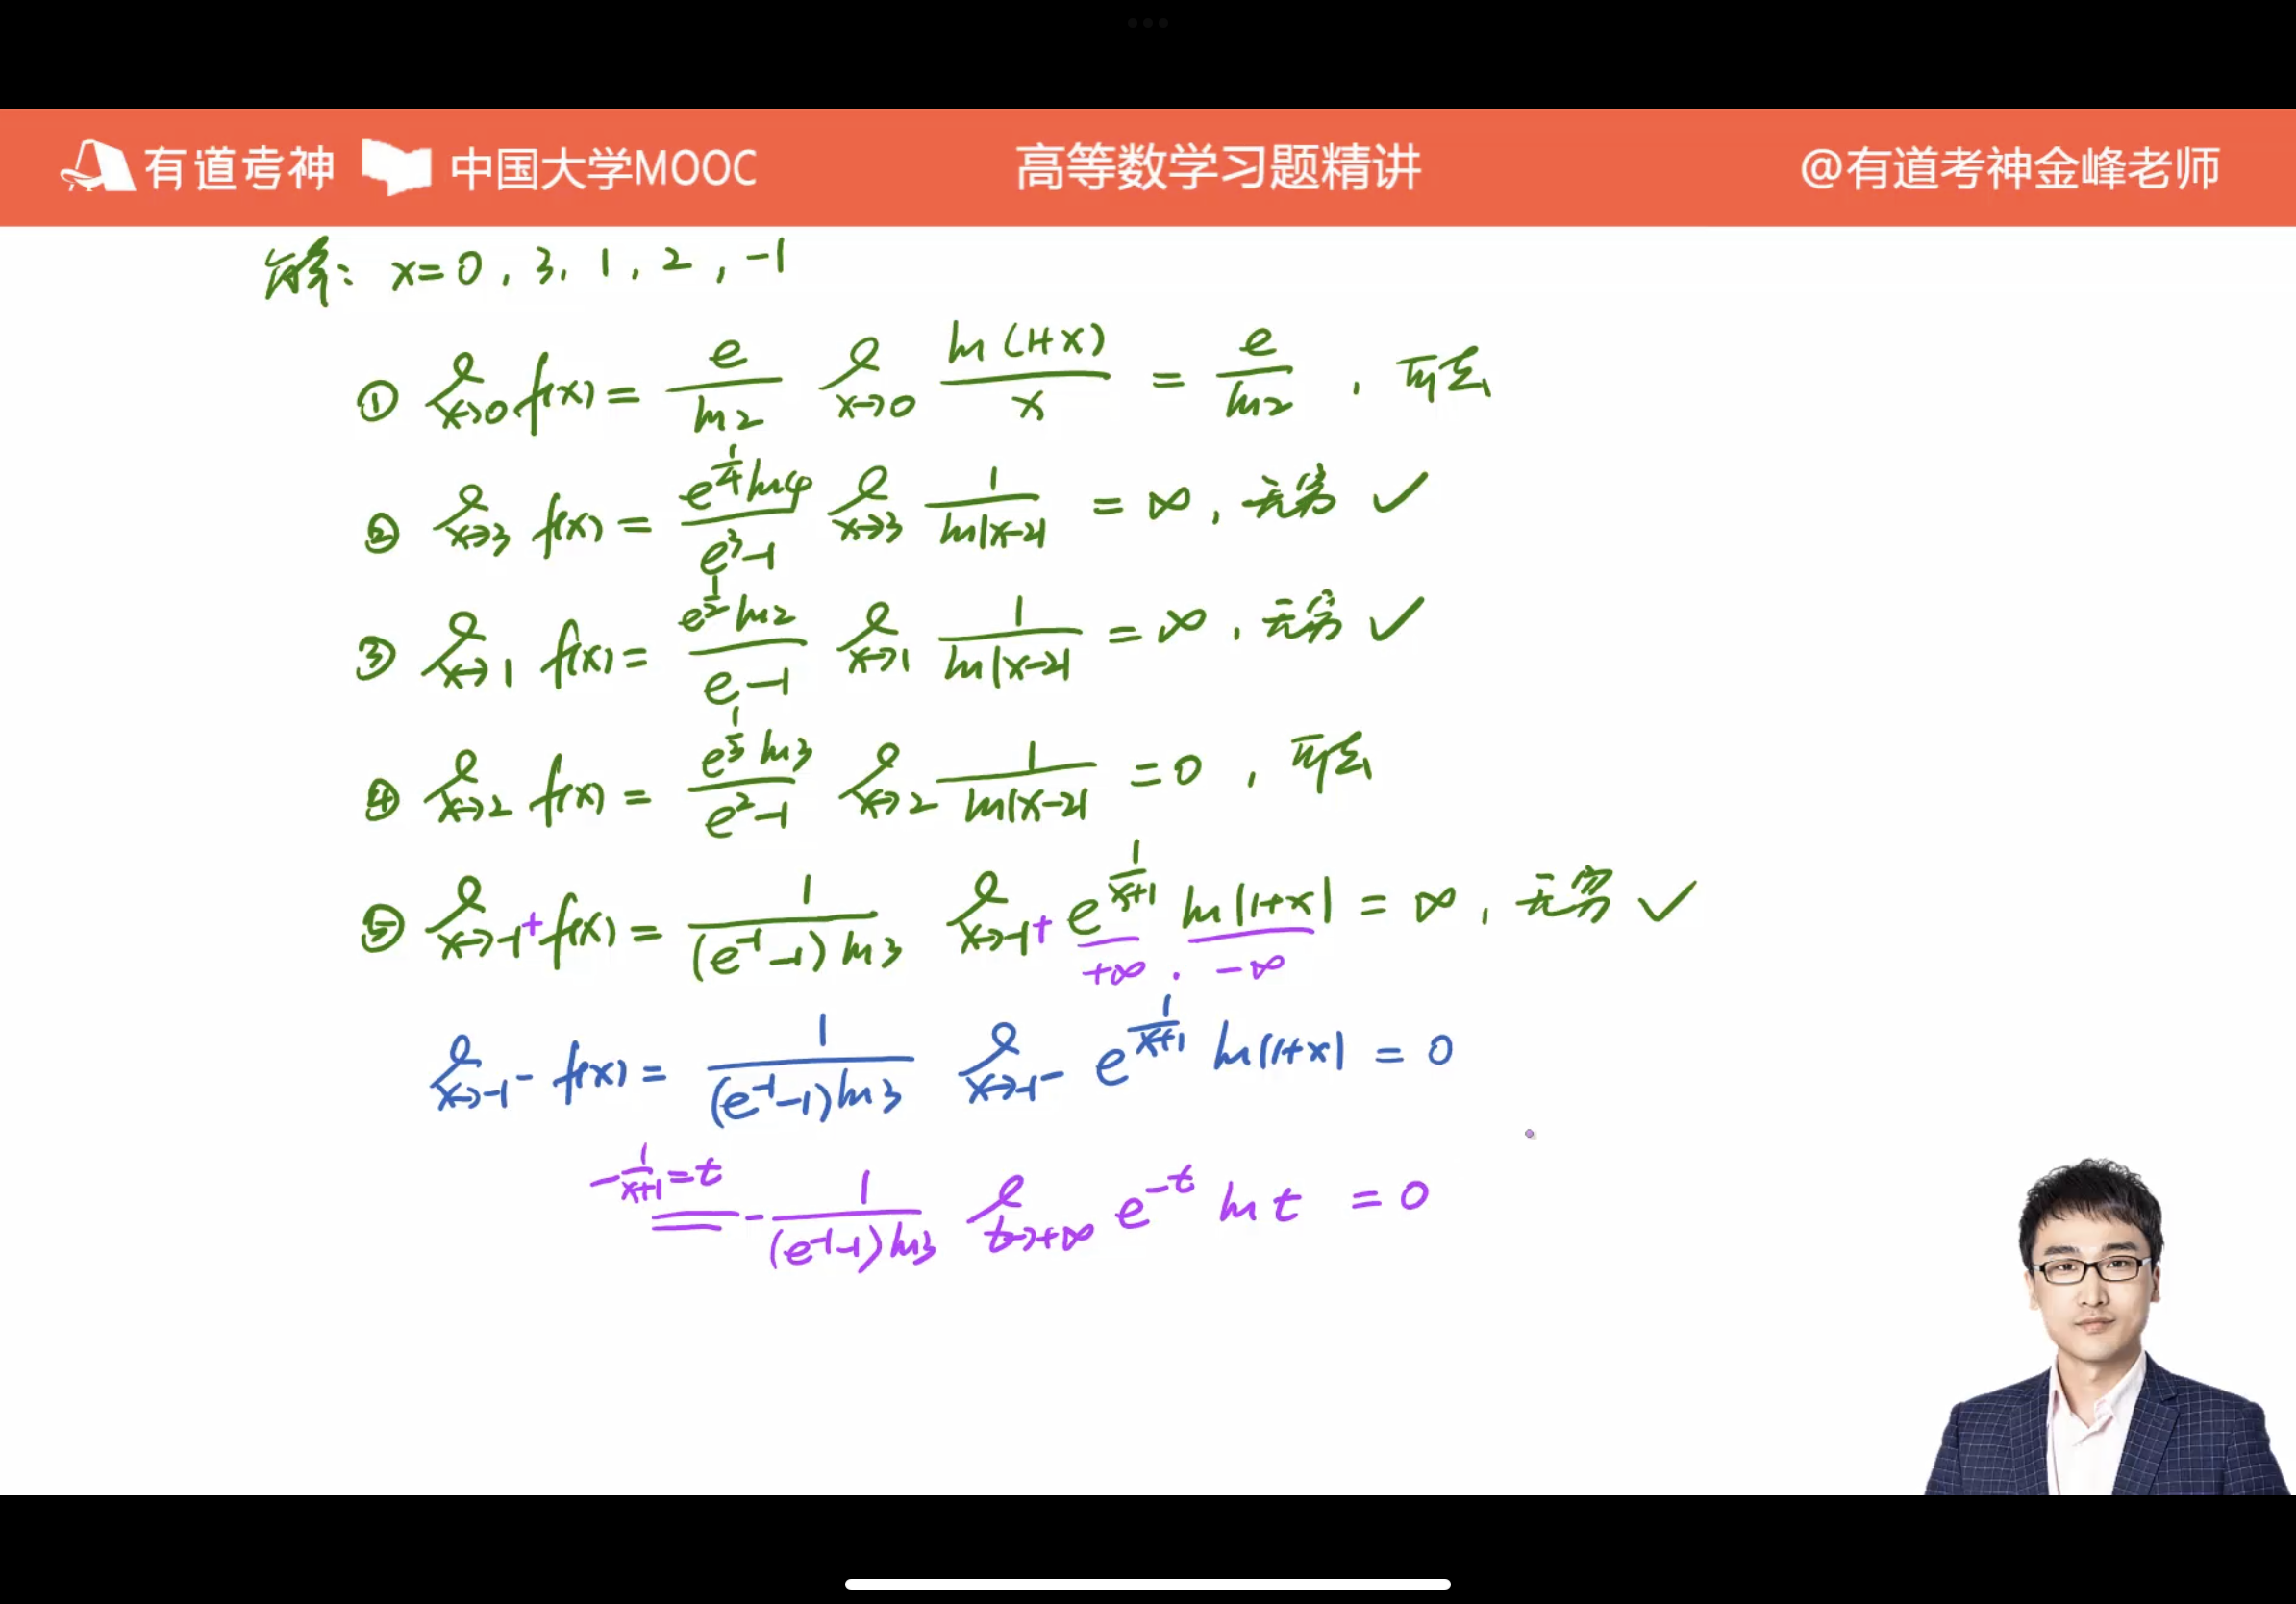 有道考神 中国大学MOOC 高等数学习题精讲 @有道考神金峰老师
解: x=0, 3, 1, 2, -1
① lim_{x→0} f(x) = \frac{e}{ln2} lim_{x→0} \frac{ln(1+x)}{x} = \frac{e}{ln2}, 可去
② lim_{x→3} f(x) = \frac{e^{\frac{1}{4}}ln4}{e^3-1} lim_{x→3} \frac{1}{ln|x-2|} = ∞, 无穷 ✓
③ lim_{x→1} f(x) = \frac{e^{\frac{1}{2}}ln2}{e-1} lim_{x→1} \frac{1}{ln|x-2|} = ∞, 无穷 ✓
④ lim_{x→2} f(x) = \frac{e^{\frac{1}{3}}ln3}{e^2-1} lim_{x→2} \frac{1}{ln|x-2|} = 0, 可去
⑤ lim_{x→-1^+} f(x) = \frac{1}{(e^{-1}-1)ln3} lim_{x→-1^+} e^{\frac{1}{x+1}} ln|1+x| = ∞, 无穷 ✓
+∞ · -∞
lim_{x→-1^-} f(x) = \frac{1}{(e^{-1}-1)ln3} lim_{x→-1^-} e^{\frac{1}{x+1}} ln|1+x| = 0
-\frac{1}{x+1}=t
= -\frac{1}{(e^{-1}-1)ln3} lim_{t→+∞} e^{-t} ln t = 0